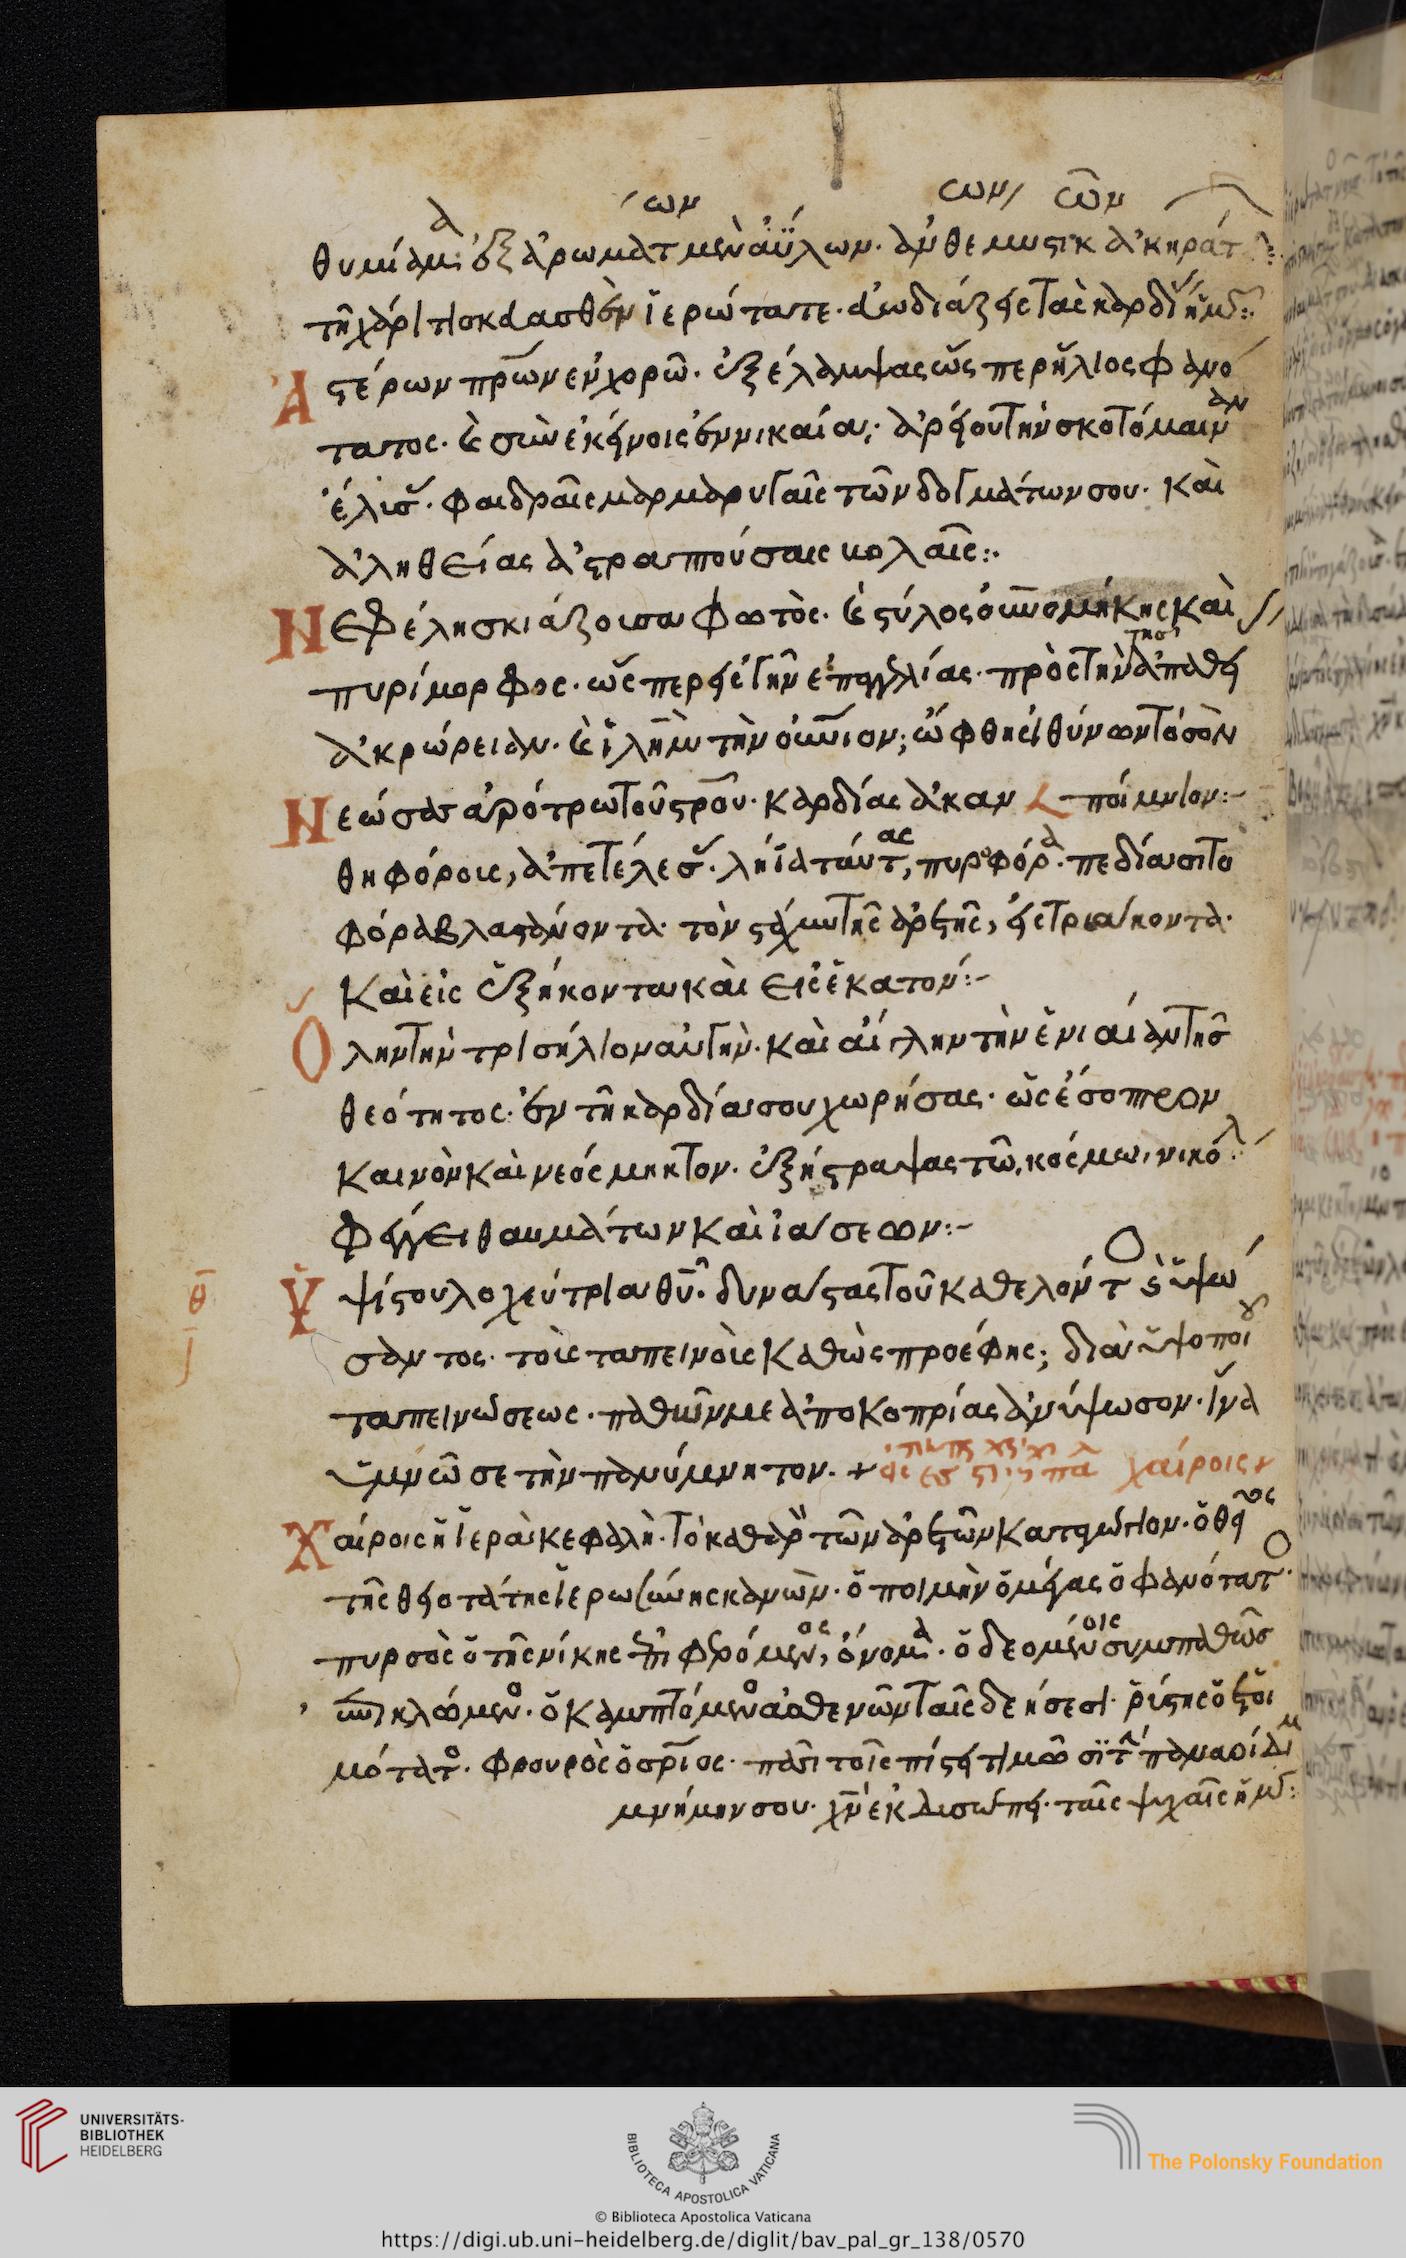 θυμίαμα ἐξ ἀρωμάτων μὲν ἀΰλων· ἀνθέων μυστικῶν ἀκηράτων
τῇ χάριτι σκευασθὲν ἱερώτατε· εὐωδιάζεις τὰς καρδίας ἡμῶν:
Ἀστέρων πρώτων ἐν χορῷ· ἐξέλαμψας ὥσπερ ἥλιος φανό
τατος· καὶ σὺν ἐκείνοις ἐν νικαία· ἀρείου τὴν σκοτόμαιναν
ἔλυσας· φαιδραῖς μαρμαρυγαῖς τῶν δογμάτων σου· καὶ
ἀληθείας ἀστραπούσαις βολαῖς:
Νεφέλη σκιάζουσα φωτὸς· καὶ στύλος οὐρανομήκης καὶ
πυρίμορφος· ὥσπερ εἰς γῆν ἐπαγγελίας· πρὸς τὴν τῆς ἀπαθείας
ἀκρώρειαν· καὶ λῆξιν τὴν οὐράνιον· ὤφθης ἰθύνων τὸ σὸν
Νεώσας ἀρότρῳ τοῦ σταυροῦ· καρδίας ἀκαν ποίμνιον:
θηφόρους, ἀπετέλεσας· λήϊα πάντας, πυροφόρα· πεδία σιτο
φόρα βλαστάνοντα· τὸν στάχυν τῆς ἀρετῆς, εἰς τριάκοντα·
Καὶ εἰς ἑξήκοντα καὶ εἰς ἑκατόν:
Ὅλην τὴν τρισήλιον αὐγὴν· καὶ αἴγλην τὴν ἑνιαίαν τῆς
θεότητος· ἐν τῇ καρδία σου χωρήσας· ὡς ἔσοπτρον
καινὸν καὶ νεόσμηκτον· ἐξήστραψας τῷ κόσμῳ νικόλαε
φέγγει θαυμάτων καὶ ἰάσεων:
θ Ὑψίστου λοχεύτρια θεοῦ· δυνάστας τοῦ καθελόντος καὶ ὑψώ
σαντος· τοὺς ταπεινοὺς καθὼς προέφης· διὰ ὑψοποιοῦ
ταπεινώσεως· παθῶν με ἀπὸ κοπρίας ἀνύψωσον· ἵνα
ὑμνῶ σε τὴν πανύμνητον. + χαίροις
Χαίροις ἡ ἱερὰ κεφαλὴ· τὸ καθαρὸν τῶν ἀρετῶν καταγώγιον· ὁ θεῖος
τῆς θειοτάτης ἱερωσύνης κανὼν· ὁ ποιμὴν ὁ μέγας ὁ φανότατος
πυρσὸς ὁ τῆς νίκης ἐπιφερόμενος, ὄνομα· ὁ δεομένοις συμπαθῶς
ἐπικλώμενος· ὁ καμπτόμενος ἀσθενῶν ταῖς δεήσεσι· ῥύστης ὁ ἑτοι
μότατος· φρουρὸς ὁ σωτήριος· πᾶσι τοῖς πίστει τιμῶσι τὴν πανάοίδιμον
μνήμην σου· χριστὸν ἐκδυσώπει· ταῖς ψυχαῖς ἡμῶν:
UNIVERSITÄTS-
BIBLIOTHEK
HEIDELBERG
BIBLIOTECA APOSTOLICA VATICANA
The Polonsky Foundation
© Biblioteca Apostolica Vaticana
https://digi.ub.uni-heidelberg.de/diglit/bav_pal_gr_138/0570